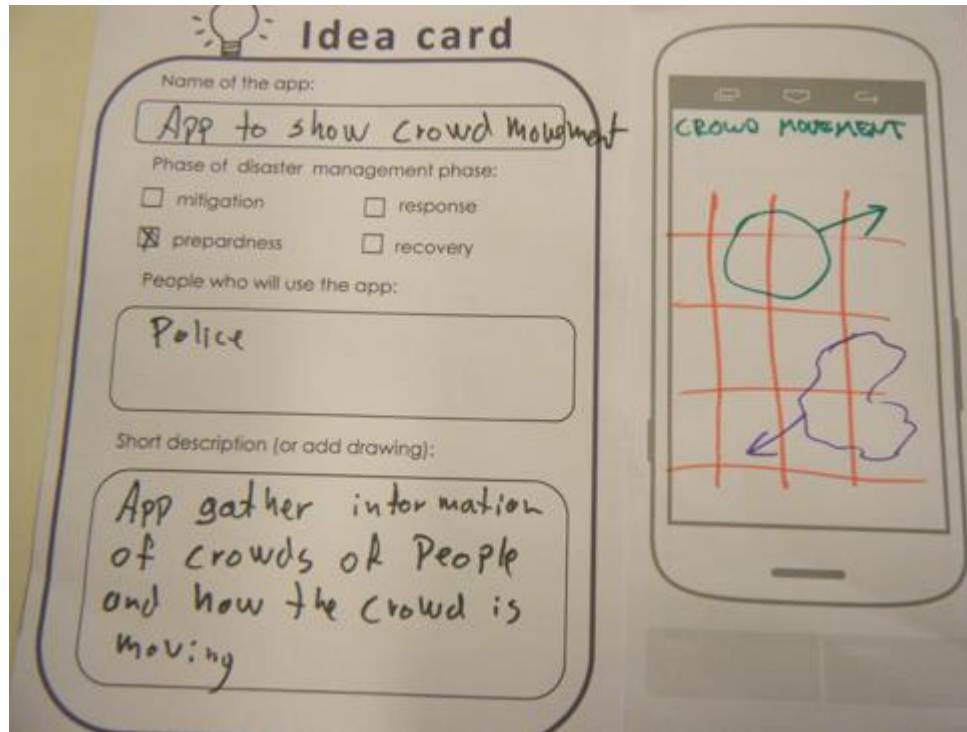 Idea card
Name of the app:
App to show crowd movement
Phase of disaster management phase:
mitigation
response
prepardness
recovery
People who will use the app:
Police
Short description (or add drawing):
App gather information
of crowds of People
and how the crowd is
moving
CROWD MOVEMENT